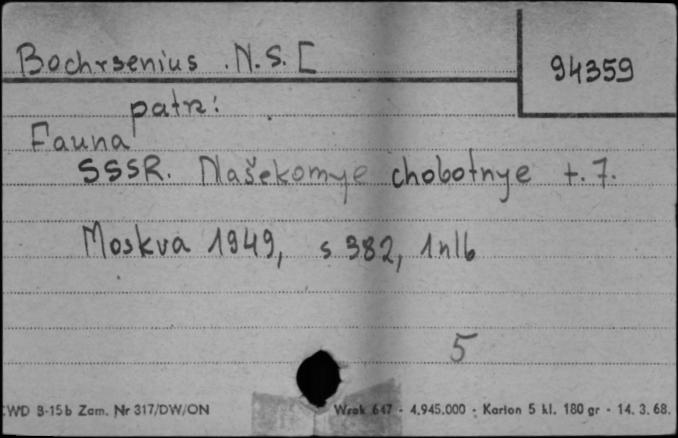 Bochrsenius .N.S. [
94359
patrz:
Fauna
SSSR. Našekomye chobotnye t. 7.
Moskva 1949, s 382, 1nlb
5
CWD B-15b Zam. Nr 317/DW/ON Wrak 647 - 4.945.000 - Karton 5 kl. 180 gr - 14. 3. 68.